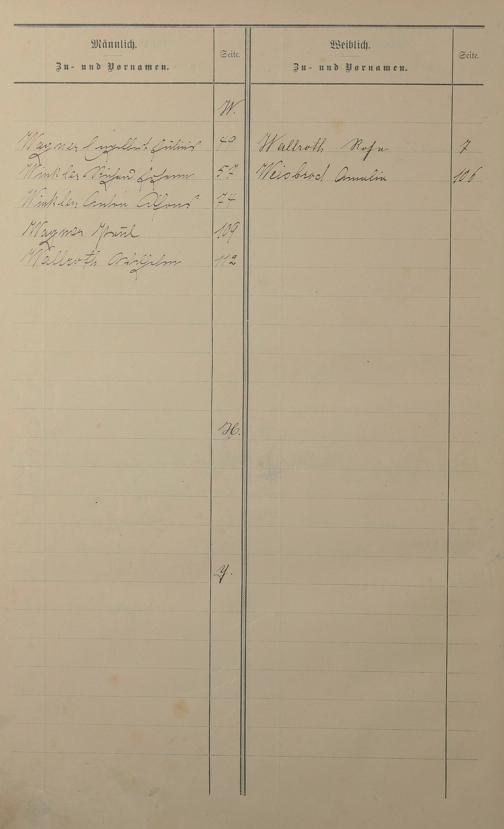 Männlich.
Zu- und Vornamen.
Seite.
Weiblich.
Zu- und Vornamen.
Seite.
W.
Wagner Engelbert Julius 49
Winkler Richard Johann 57
Winkler Anton Alfons 74
Wagner Paul 109
Wallroth Wilhelm 112
Wallroth Rosa 7
Weisbrod Amalia 106
X.
Y.